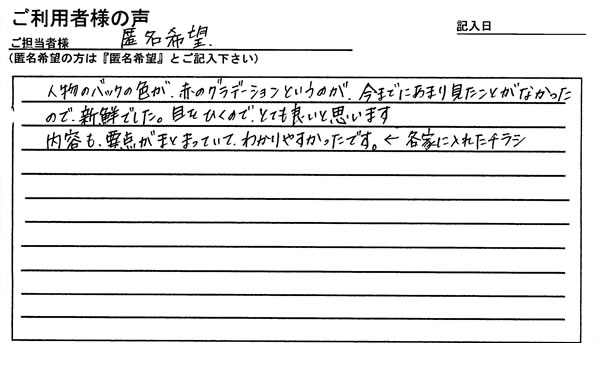 ご利用者様の声
記入日
ご担当者様 匿名希望.
(匿名希望の方は『匿名希望』とご記入下さい)
人物のバックの色が、赤のグラデーションというのが、今までにあまり見たことがなかった
ので、新鮮でした。目をひくので、とても良いと思います
内容も、要点がまとまっていて、わかりやすかったです。← 各家に入れたチラシ